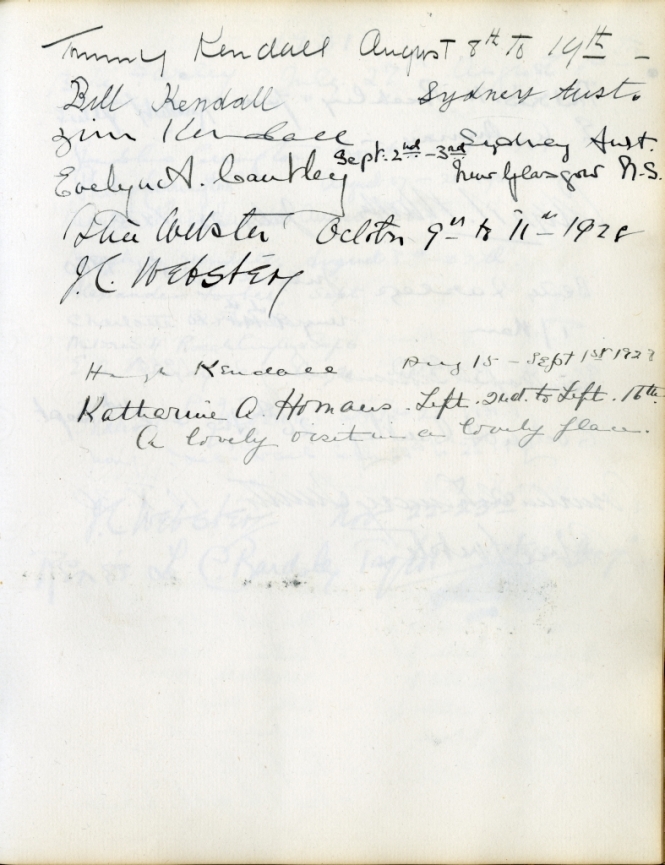 Tommy Kendall August 8th to 19th -
Bill Kendall Sydney Aust.
Jim Kendall Sydney Aust.
Evelyn A. Cantley Sept. 2nd - 3rd New Glasgow N.S.
Webster October 9th to 11th 1928
J.C. WEBSTER
Hugh Kendall Aug 15 - Sept 1st
Katherine A Homans. Sept. 2nd. to Sept. 16th.
A lovely visit in a lovely place.